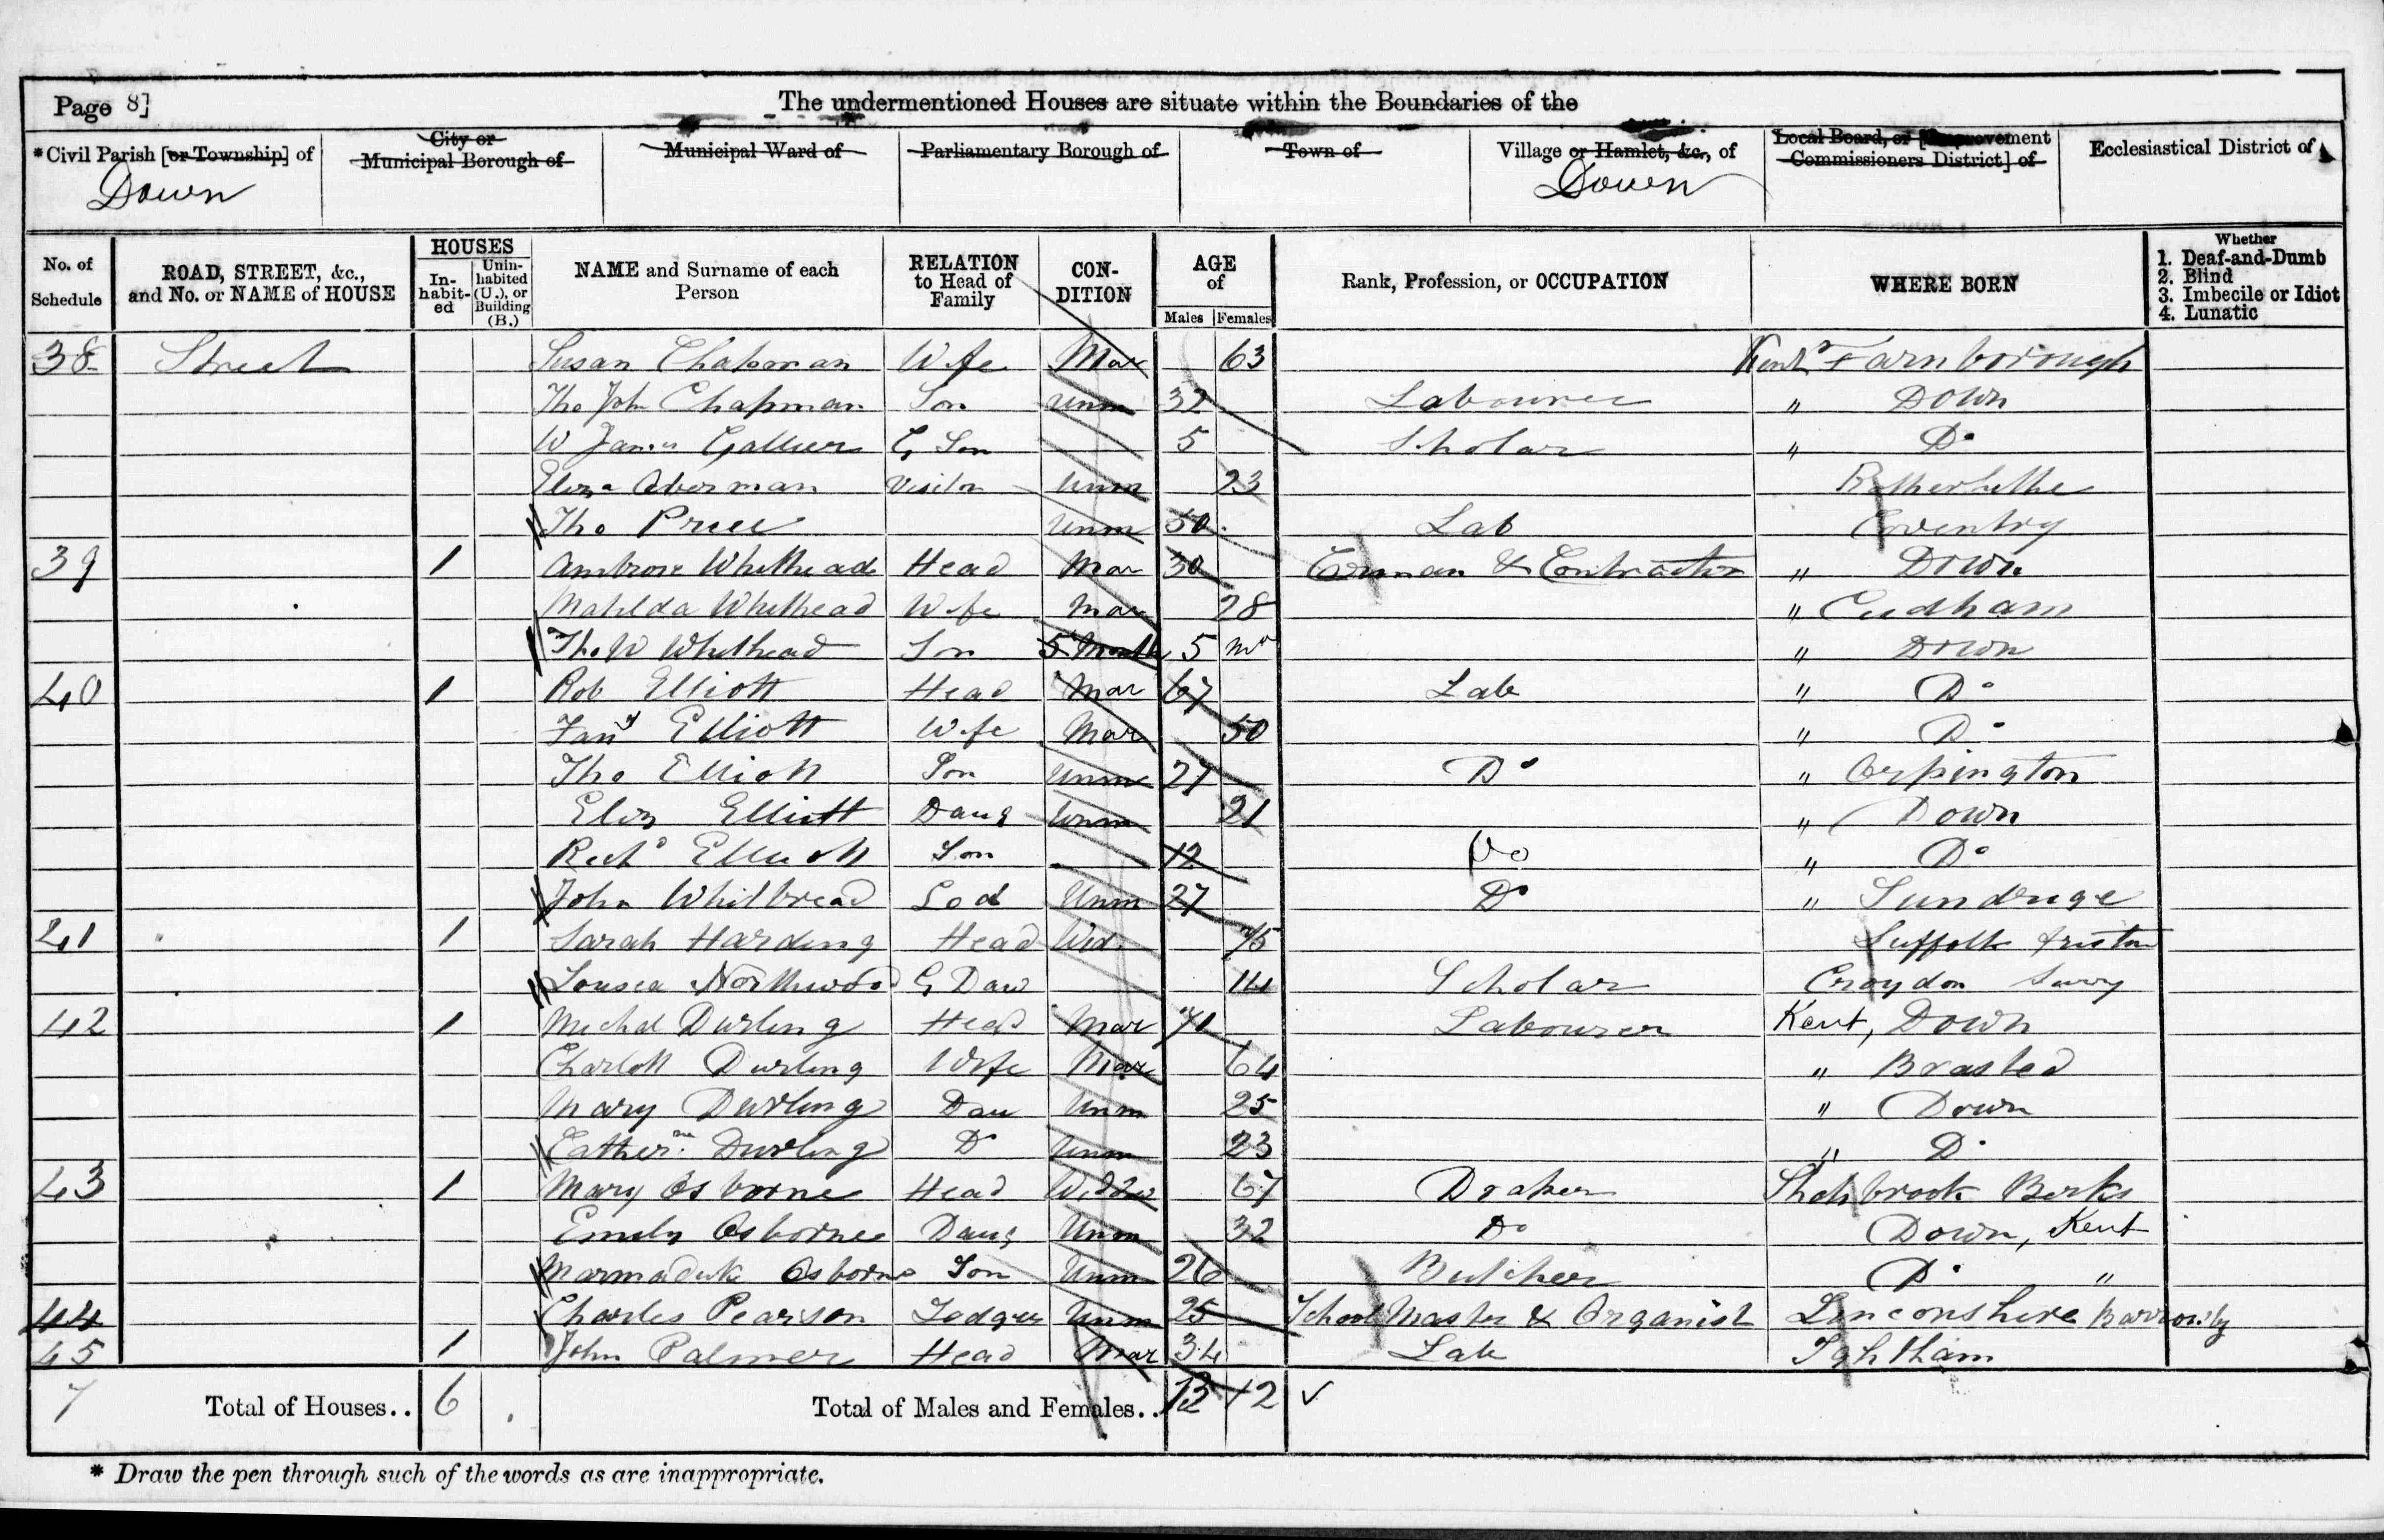 Page 8]
The undermentioned Houses are situate within the Boundaries of the
*Civil Parish [or Township] of
Down
City or Municipal Borough of
Municipal Ward of
Parliamentary Borough of
Town of
Village or Hamlet, &c., of
Down
Local Board, or [Improvement Commissioners District] of
Ecclesiastical District of
No. of Schedule
ROAD, STREET, &c., and No. or NAME of HOUSE
HOUSES
In-habit-ed
Unin-habited (U.), or Building (B.)
NAME and Surname of each Person
RELATION to Head of Family
CON-DITION
AGE of
Males Females
Rank, Profession, or OCCUPATION
WHERE BORN
Whether
1. Deaf-and-Dumb
2. Blind
3. Imbecile or Idiot
4. Lunatic
38 Street Susan Chapman Wife Mar 63 Kent Farnborough
Tho John Chapman Son Unm 32 Labourer " Down
W James Son 5 Scholar " Do
Eliza Visitor Unm 23 Rotherhithe
Tho Price Unm 50 Lab Coventry
39 1 Ambrose Whithead Head Mar 30 Carman & Contractor " Down
Matilda Whithead Wife Mar 28 " Cudham
Tho W Whithead Son 5 Month 5 mo " Down
40 1 Rob Elliott Head Mar 67 Lab " Do
Fany Elliott Wife Mar 50 " Do
Tho Elliott Son Unm 27 Do " Orpington
Eliz Elliott Daug Unm 21 " Down
Richd Elliott Son 12 Do " Do
John Whitbread Lod Unm 27 Do " Sundrige
41 1 Sarah Harding Head Wid. 75 Suffolk Friston
Lousea Northwood G Daw 14 Scholar Croydon Surry
42 1 Michal Durling Head Mar 71 Labourer Kent, Down
Charlott Durling Wife Mar 64 " Brasted
Mary Durling Dau Unm 25 " Down
Catherine Durling Do Unm 23 " Do
43 1 Mary Osborne Head Widow 67 Draper Berks
Emily Osborne Daug Unm 32 Do Down, Kent
Marmaduke Osborne Son Unm 26 Butcher Do "
44 Charles Pearson Lodger Unm 25 School Master & Organist Linconshire Barrowby
45 1 John Palmer Head Mar 34 Lab Ightham
7 Total of Houses.. 6 Total of Males and Females.. 13 12 ✓
* Draw the pen through such of the words as are inappropriate.